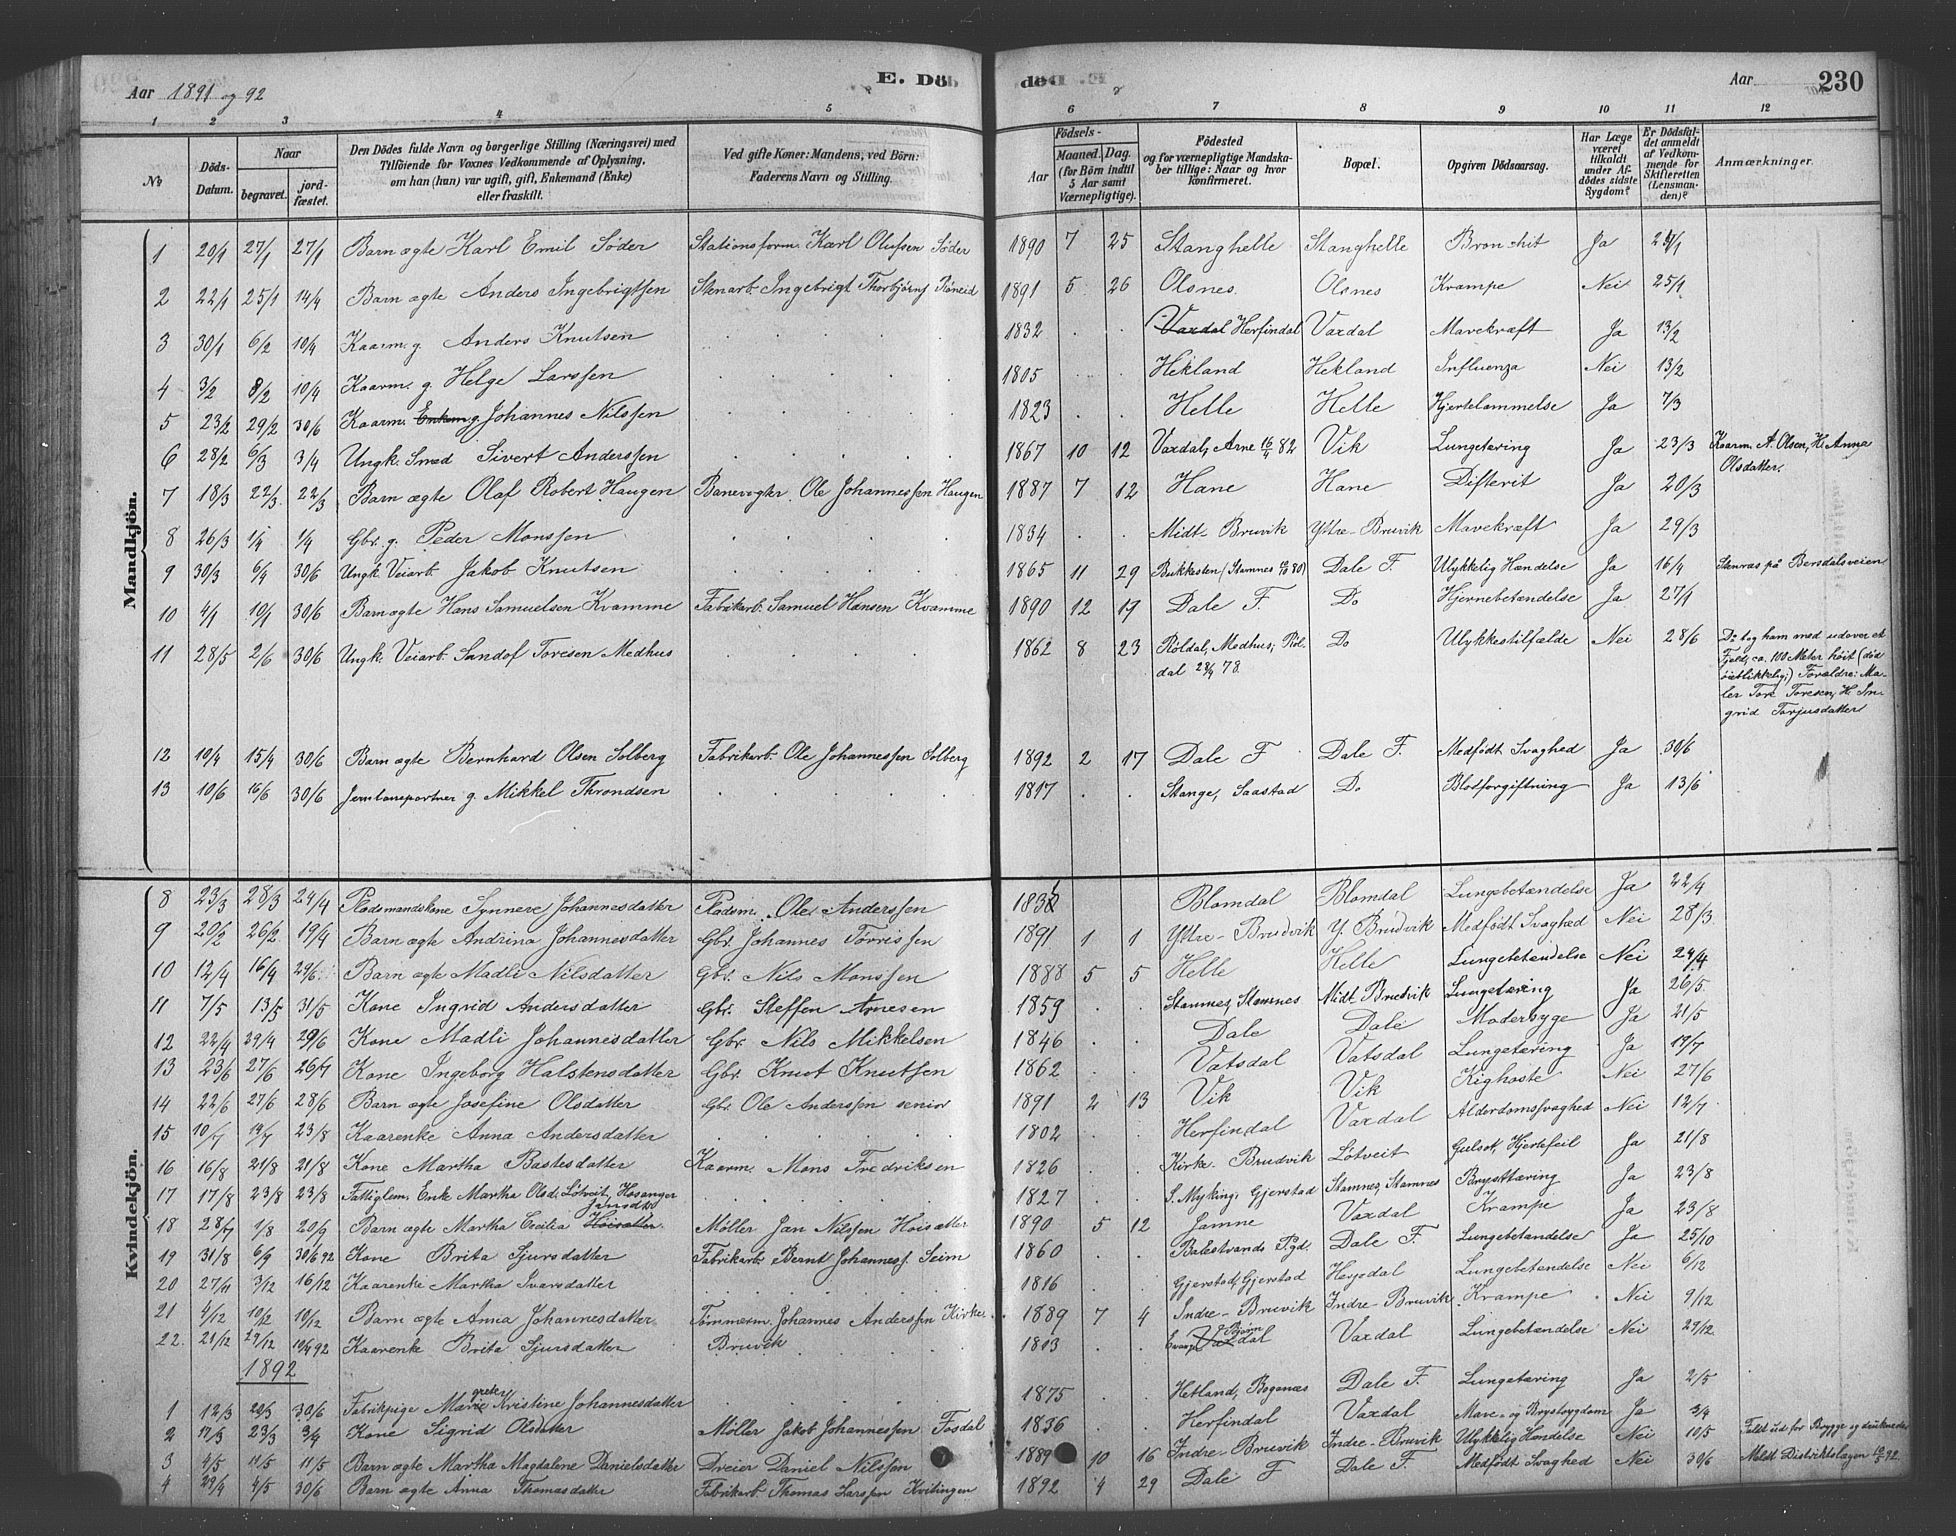 Aar 1891 og 92
E. Döb
E. Döb
Aar
230
1 2 3 4 5 6 7 8 9 10 11 12
No
Döds-Datum.
Naar
begravet.
jord-fæstet.
Den Dödes fulde Navn og borgerlige Stilling (Næringsvei) med
Tilföiende for Voxnes Vedkommende af Oplysning,
om han (hun) var ugift, gift, Enkemand (Enke)
eller fraskilt.
Ved gifte Koner: Mandens, ved Börn:
Faderens Navn og Stilling.
Födsels-
Aar
Maaned. Dag.
(for Börn indtil
5 Aar samt
Værnepligtige).
Födested
og for værnepligtige Mandska-
ber tillige: Naar og hvor
konfirmeret.
Bopæl.
Opgiven Dödsaarsag.
Har Læge
været
tilkaldt
under Af-
dödes sidste
Sygdom?
Er Dödsfal-
det anmeldt
af Vedkom-
mende for
Skifteretten
(Lensman-
den)?
Anmærkninger.
Mandkjön.
1 20/1 27/1 27/1 Barn ægte Karl Emil Söder Stationsform. Karl Olufsen Söder 1890 7 25 Stanghelle Stanghelle Bronchit Ja 24/1
2 22/1 25/1 14/4 Barn ægte Anders Ingebrigtsen Stenarb. Ingebrigt Thorbjörns. 1891 5 26 Olsnes Olsnes Krampe Nei 25/1
3 30/1 6/2 10/4 Kaarm. g. Anders Knutsen 1832 Vaxdal Herfindal Vaxdal Mavekræft Ja 13/2
4 3/2 8/2 10/4 Kaarm. g. Helge Larssen 1805 Hekland Hekland Influenza Nei 13/2
5 23/2 29/2 30/6 Kaarm. Enkem g. Johannes Nilssen 1823 Helle Helle Hjertelammelse Ja 7/3
6 28/2 6/3 3/4 Ungk. Smed Sivert Anderssen 1867 10 12 Vaxdal, Arne 16/4 82 Vik Lungetæring Ja 23/3 Kaarm. A. Olsen, H. Anna
Olsdatter.
7 18/3 22/3 22/3 Barn ægte Olaf Robert Haugen Banevogter Ole Johannessen Haugen 1887 7 12 Hane Hane Difterit Ja 20/3
8 26/3 1/4 1/4 Gbr. g. Peder Monssen 1834 Midt-Bruvik Yttre-Bruvik Mavekræft Ja 29/3
9 30/3 6/4 30/6 Ungk. Veiarb. Jakob Knutsen 1865 11 29 Bukkesten (Stamnes 80) Dale F. Ulykkelig Hændelse Ja 16/4 Stenras på Bersdalsveien
10 4/1 10/1 30/6 Barn ægte Hans Samuelsen Kvamme Fabrikarb. Samuel Hansen Kvamme 1890 12 19 Dale F. Do Hjernebetændelse Ja 27/1
11 28/5 2/6 30/6 Ungk. Veiarb. Sandof Toresen Medhus 1862 8 23 Röldal, Medhus, Röl-
dal 78. Do Ulykkestilfælde Nei 28/6 tog ham med udover et
Fjeld, ca. 100 Meter höit (död
öieblikkelig.) Forældre: Ma-
ler Tore Toresen, H. In-
grid Torjusdatter
12 10/4 15/4 30/6 Barn ægte Bernhard Olsen Solberg Fabrikarb. Ole Johannessen Solberg 1892 2 17 Dale F Dale F. Medfödt Svaghed Ja 30/6
13 10/6 16/6 30/6 g. Mikkel Throndsen 1817 Stange, Saastad Do Blodforgiftning Ja 13/6
Kvindekjön.
8 23/3 28/3 24/4 Pladsmandskone Synneve Johannesdatter Pladsm. Ole Anderssen Blomdal Blomdal Lungebetændelse Ja 22/4
9 20/2 26/2 19/4 Barn ægte Andrina Johannesdatter Gbr. Johannes Tørrissen 1891 1 1 Yttre-Brudvik Y. Brudvik Medfödt Svaghed Nei 28/3
10 12/4 16/4 29/6 Barn ægte Madli Nilsdatter Gbr. Nils Monssen 1888 5 5 Helle Helle Lungebetændelse Nei 24/4
11 7/5 13/5 31/5 Kone Ingrid Andersdatter Gbr. Steffen Arnesen 1859 Stamnes, Stamnes Midt Brudvik Lungetæring Ja 26/5
12 22/4 29/4 29/6 Kone Madli Johannesdatter Gbr. Nils Mikkelsen 1846 Dale Dale Modersyge Ja 21/5
13 23/6 27/6 26/7 Kone Ingeborg Halstensdatter Gbr. Knut Knutsen 1862 Vatsdal Vatsdal Lungetæring Ja 17/7
14 22/6 27/6 28/6 Barn ægte Josefine Olsdatter Gbr. Ole Anderssen senior 1891 2 13 Vik Vik Kighoste Nei 27/6
15 10/7 19/7 23/8 Kaarenke Anna Andersdatter 1802 Herfindal Vaxdal Alderdomssvaghed Nei 12/7
16 16/8 21/8 21/8 Kone Martha Bastesdatter Kaarm. Mons Fredriksen 1826 Kirke-Brudvik Lötveit Gulsot, Hjertefeil Ja 21/8
17 17/8 23/8 23/8 Fattiglem Enke Martha Olsd. Lötveit, Hosanger 1827 S. Myking, Gjerstad Stamnes, Stamnes Brysttæring Ja 23/8
18 28/7 1/8 20/9 Barn ægte Martha Cecilia Jansdtr Höisæter Möller Jan Nilssen Höisæter 1890 5 12 Jamne Vaxdal Krampe Ja 23/8
19 31/8 6/9 30/6 92 Kone Brita Sjursdatter Fabrikarb. Bernt Johanness. Seim 1860 Balestrands Pgd. Dale F Lungebetændelse Ja 25/10
20 27/11 3/12 16/12 Kaarenke Martha Ivarsdatter 1816 Gjerstad, Gjerstad Lungebetændelse Nei 6/12
21 4/12 10/12 10/12 Barn ægte Anna Johannesdatter Tömmerm. Johannes Anderssen Kirke-
Bruvik 1889 7 4 Indre-Bruvik Indre-Bruvik Krampe Nei 9/12
22. 21/12 29/12 10/4 92 Kaarenke Brita Sjursdatter 1813 Vaxdal Vaxdal Lungebetændelse Nei 29/12
1892
1 12/3 20/3 30/6 Fabrikpige Margrete Kristine Johannesdatter 1875 Hetland, Bogenæs Dale F. Lungetæring Ja 2/5
2 17/3 23/3 3/4 Kone Sigrid Olsdatter Möller Jakob Johannessen Fosdal 1836 Herfindal Vaxdal Mave- og Brystsygdom Ja 3/4
3 4/5 11/5 11/5 Barn ægte Martha Magdalene Danielsdatter Dreier Daniel Nilssen 1889 10 16 Indre-Bruvik Indre-Bruvik Ulykkelig Hændelse Nei 10/5 Faldt ud for Brygge og druknede
Meldt Distriktslægen 92.
4 29/4 4/5 30/6 Barn ægte Anna Thomasdatter Fabrikarb. Thomas Larssen Kvitingen 1892 4 29 Dale F Dale F. Medfödt Svaghed Nei 30/6